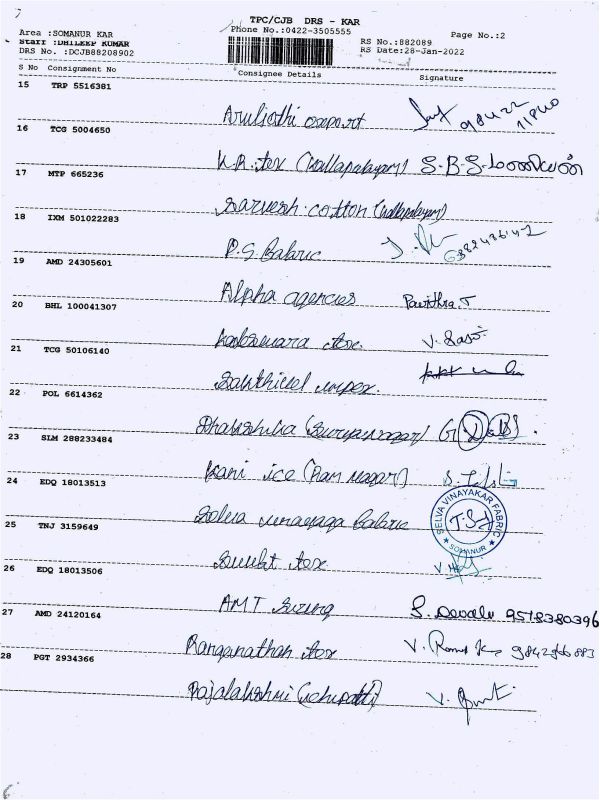 TPC/CJB DRS - KAR
Area :SOMANUR KAR Phone No.:0422-3505555 Page No.:2
Staff :DHILEEP KUMAR RS No.:882089
DRS No. :DCJB88208902 RS Date:28-Jan-2022
S No Consignment No Consignee Details Signature
15 TRP 5516381
Aruljothi export 98422 11940
16 TCG 5004650
K.R. tex (Kallapalayam) S.B.S.
17 MTP 665236
Sarvesh cotton (Kallapalayam)
18 IXM 501022283
P.S. Fabric
19 AMD 24305601
Alpha agencies Pavithra.T
20 BHL 100041307
tex.
21 TCG 50106140
Sakthivel impex.
22 POL 6614362
(Suryanagar)
23 SLM 288233484
Kani ice (Ram Nagar)
24 EDQ 18013513
Selva vinayaga Fabric
SELVA VINAYAKAR FABRIC
SOMANUR
25 TNJ 3159649
tex
26 EDQ 18013506
AMT Sizing 9578380396
27 AMD 24120164
Ranganathan tex V.
28 PGT 2934366
Rajalakshmi V.